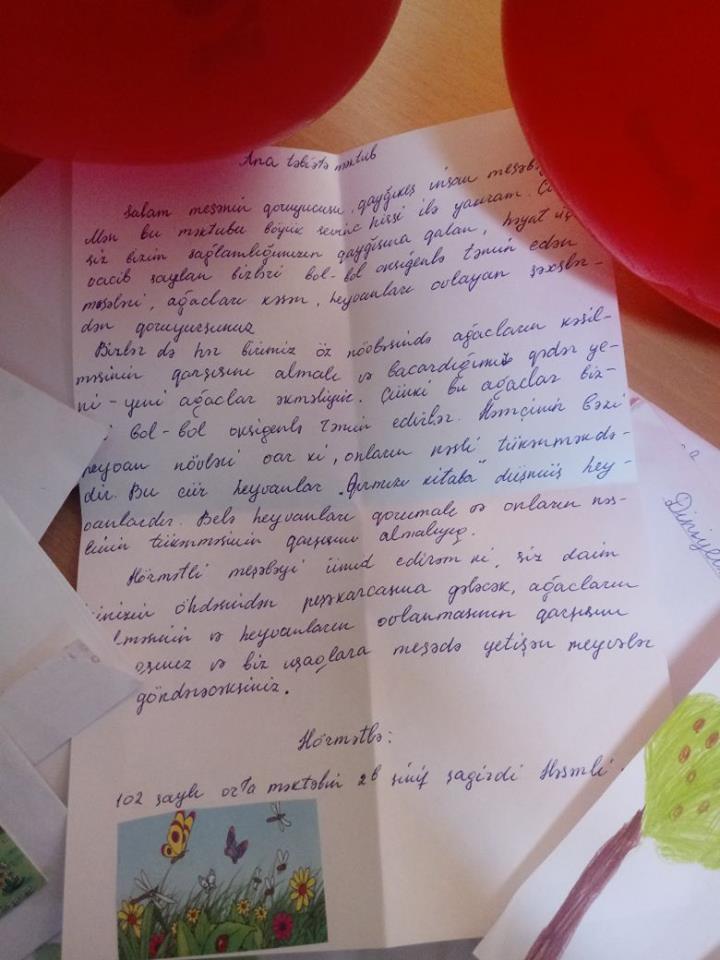 Ana təbiətə məktub
Salam meşənin qoruyucusu, qayğıkeş insan meşəbəyi
Mən bu məktubu böyük sevinc hissi ilə yazıram.
siz bizim sağlamlığımızın qayğısına qalan, həyat üç
vacib sayılan bizləri bol-bol oksigenlə təmin edən
meşələri, ağacları kəsən, heyvanları ovlayan şəxslər-
dən qoruyursunuz
Bizlər də hər birimiz öz növbəsində ağacların kəsil-
məsinin qarşısını almalı və bacardığımız qədər ye-
ni-yeni ağaclar əkməliyik. Çünki bu ağaclar biz-
i bol-bol oksigenlə təmin edirlər. Həmçinin bəzi
heyvan növləri var ki, onların nəsli tükənməkdə-
dir. Bu cür heyvanlar "Qırmızı kitaba" düşmüş hey-
vanlardır. Belə heyvanları qorumalı və onların nəs-
linin tükənməsinin qarşısını almalıyıq.
Hörmətli meşəbəyi ümid edirəm ki, siz daim
işinizin öhdəsindən peşəkarcasına gələcək, ağacların
lməsinin və heyvanların ovlanmasının qarşısını
və biz uşaqlara meşədə yetişən meyvələr
göndərəcəksiniz.
Hörmətlə:
102 saylı orta məktəbin 2b sinif şagirdi